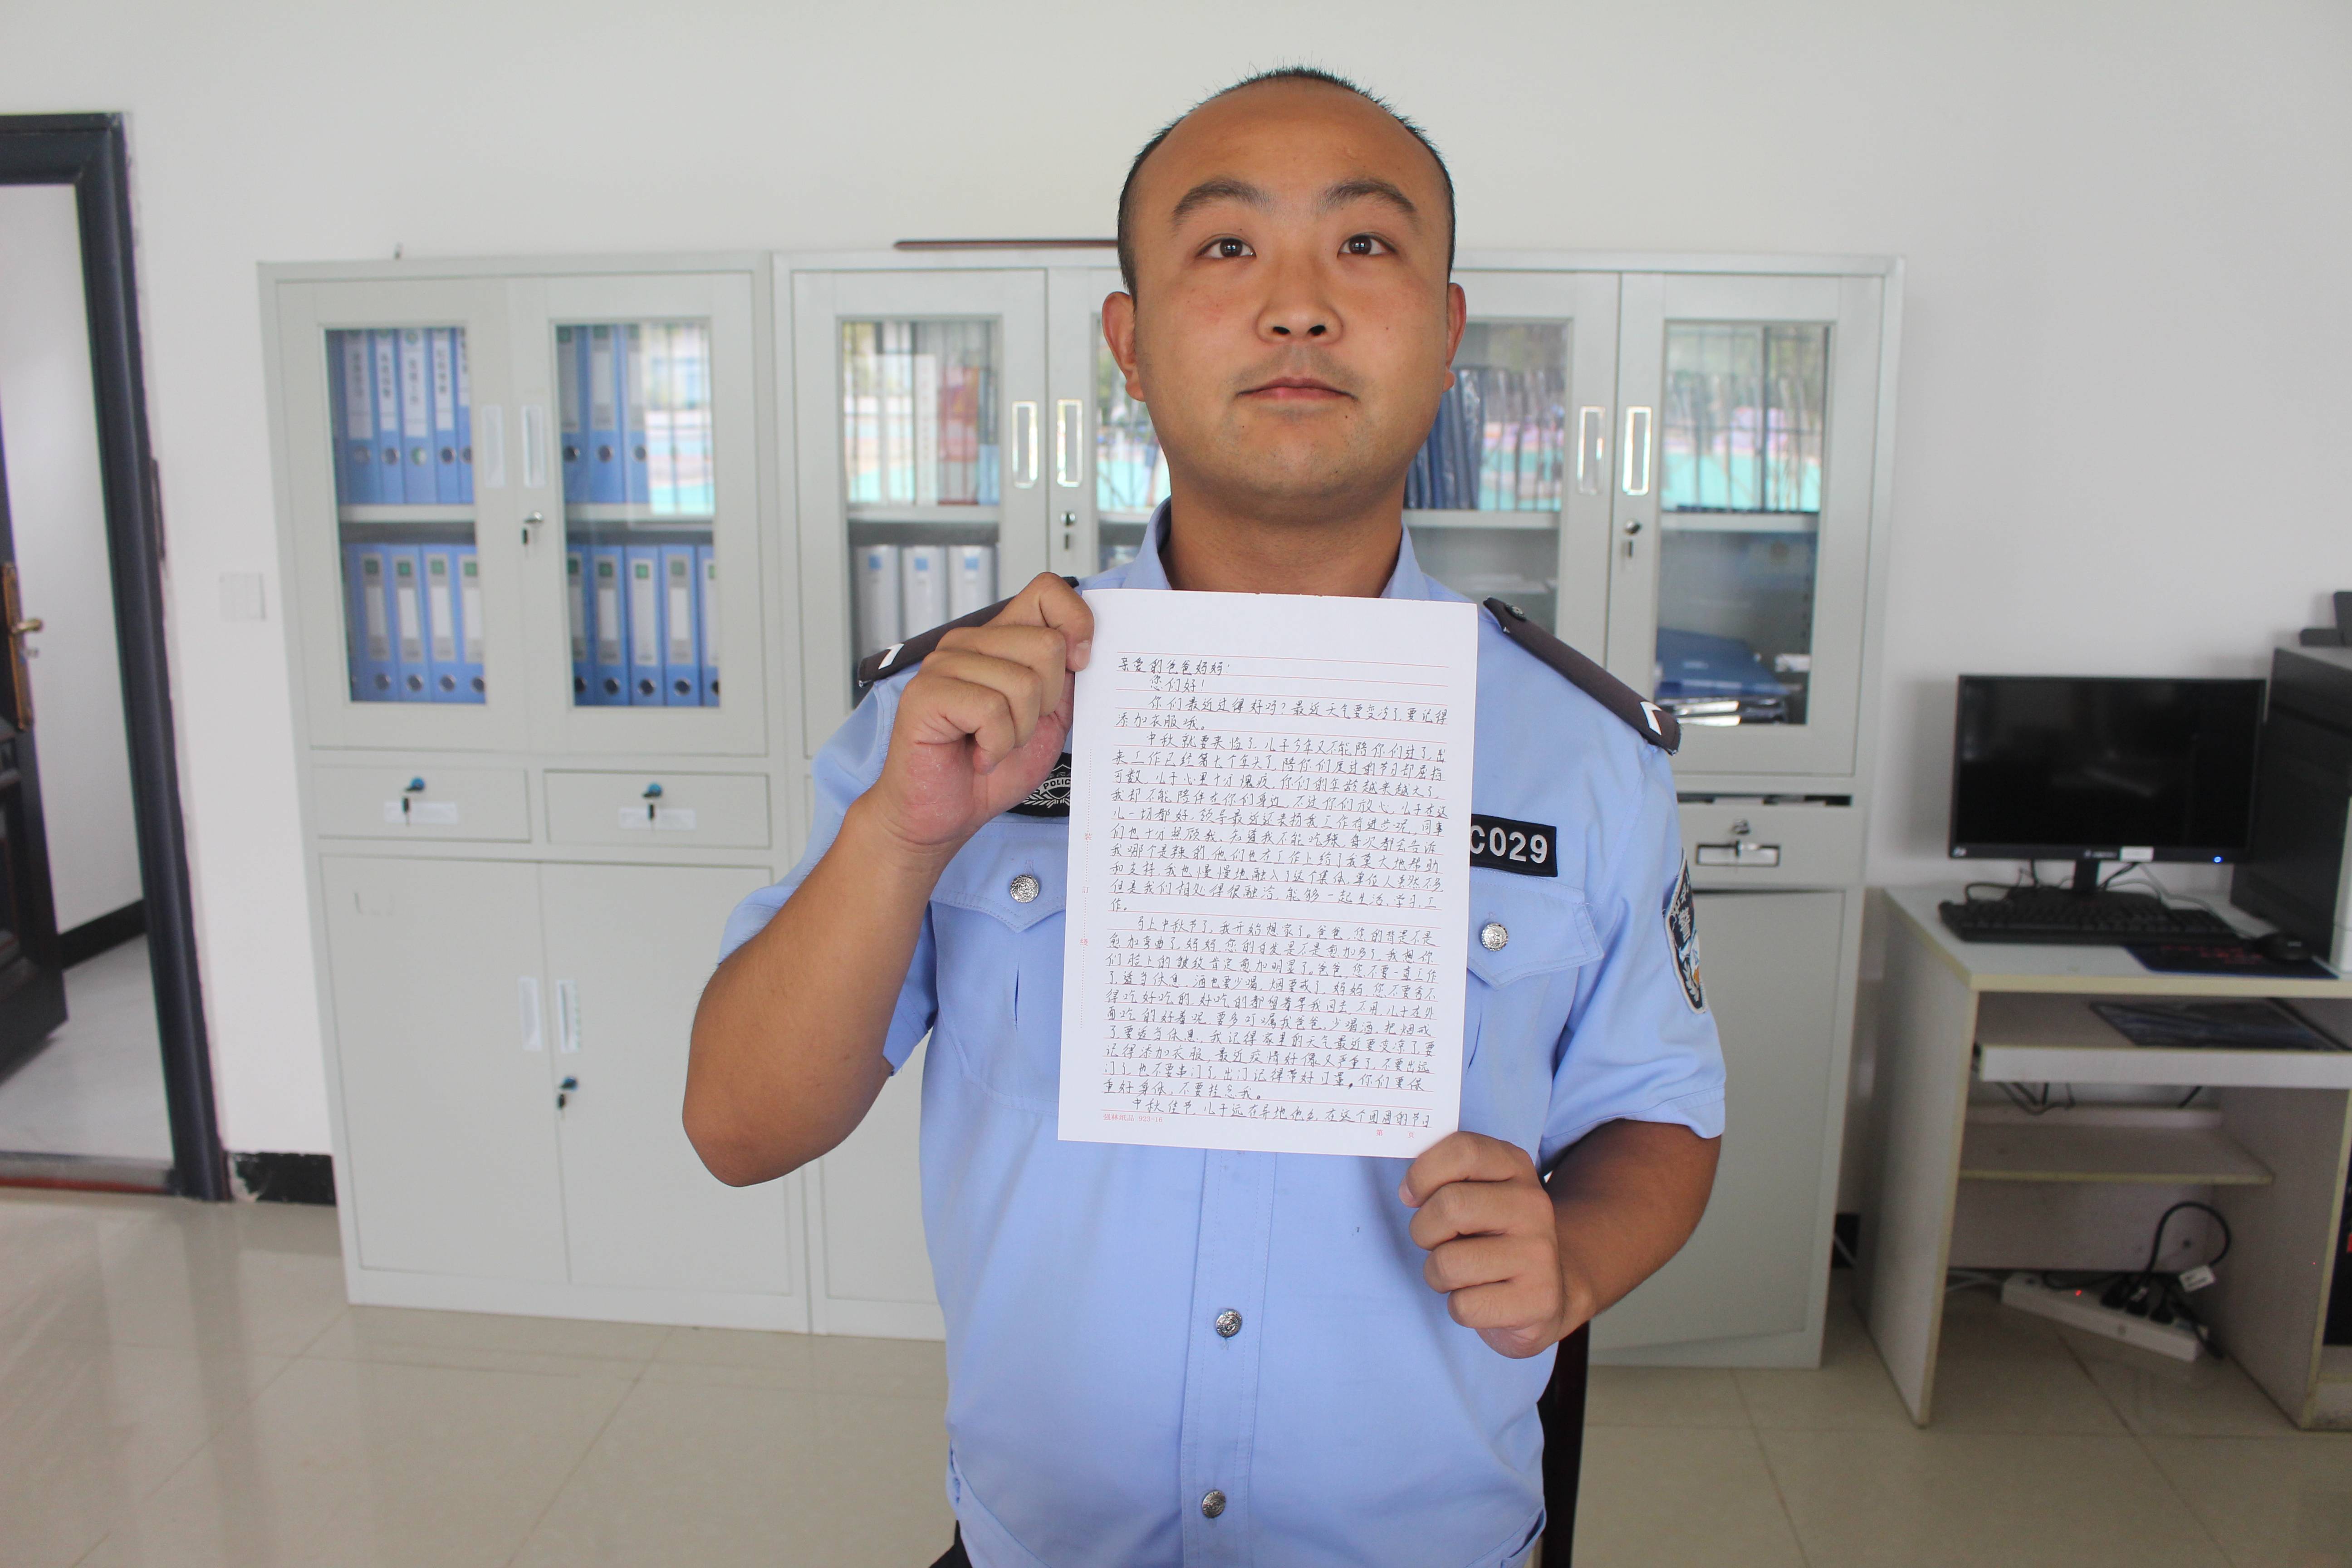 亲爱的爸爸妈妈:
您们好!
你们最近过得好吗?最近天气要变冷了,要记得
添加衣服哦。
中秋就要来临了,儿子今年又不能陪你们过了,出
来工作已经第七个年头了,陪你们度过的节日却屈指
可数,儿子心里十分愧疚,你们的年龄越来越大了,
我却不能陪伴在你们身边,不过你们放心,儿子在这
儿一切都好,领导最近还表扬我工作有进步呢,同事
们也十分照顾我,知道我不能吃辣,每次都会告诉
我哪个是辣的,他们也在工作上给了我莫大地帮助
和支持,我也慢慢地融入了这个集体,单位人虽然不多
但是我们相处得很融洽,能够一起生活,学习,工
作。
马上中秋节了,我开始想家了。爸爸,您的背是不是
愈加弯曲了,妈妈,您的白发是不是愈加多了,我想你
们脸上的皱纹肯定愈加明显了。爸爸,您不要一直工作
了,适当休息,酒也要少喝,烟要戒了,妈妈,您不要舍不
得吃好吃的,好吃的都留着等我回去,不用,儿子在外
面吃的好着呢,要多叮嘱我爸爸,少喝酒,把烟戒
了,要适当休息,我记得家里的天气最近要变凉了,要
记得添加衣服,最近疫情好像又严重了,不要出远
门了,也不要串门了,出门记得带好口罩。你们要保
重好身体,不要挂念我。
中秋佳节,儿子远在异地他乡,在这个团圆的节日
装
订
线
923-16
第 页
POLICE
C029
警